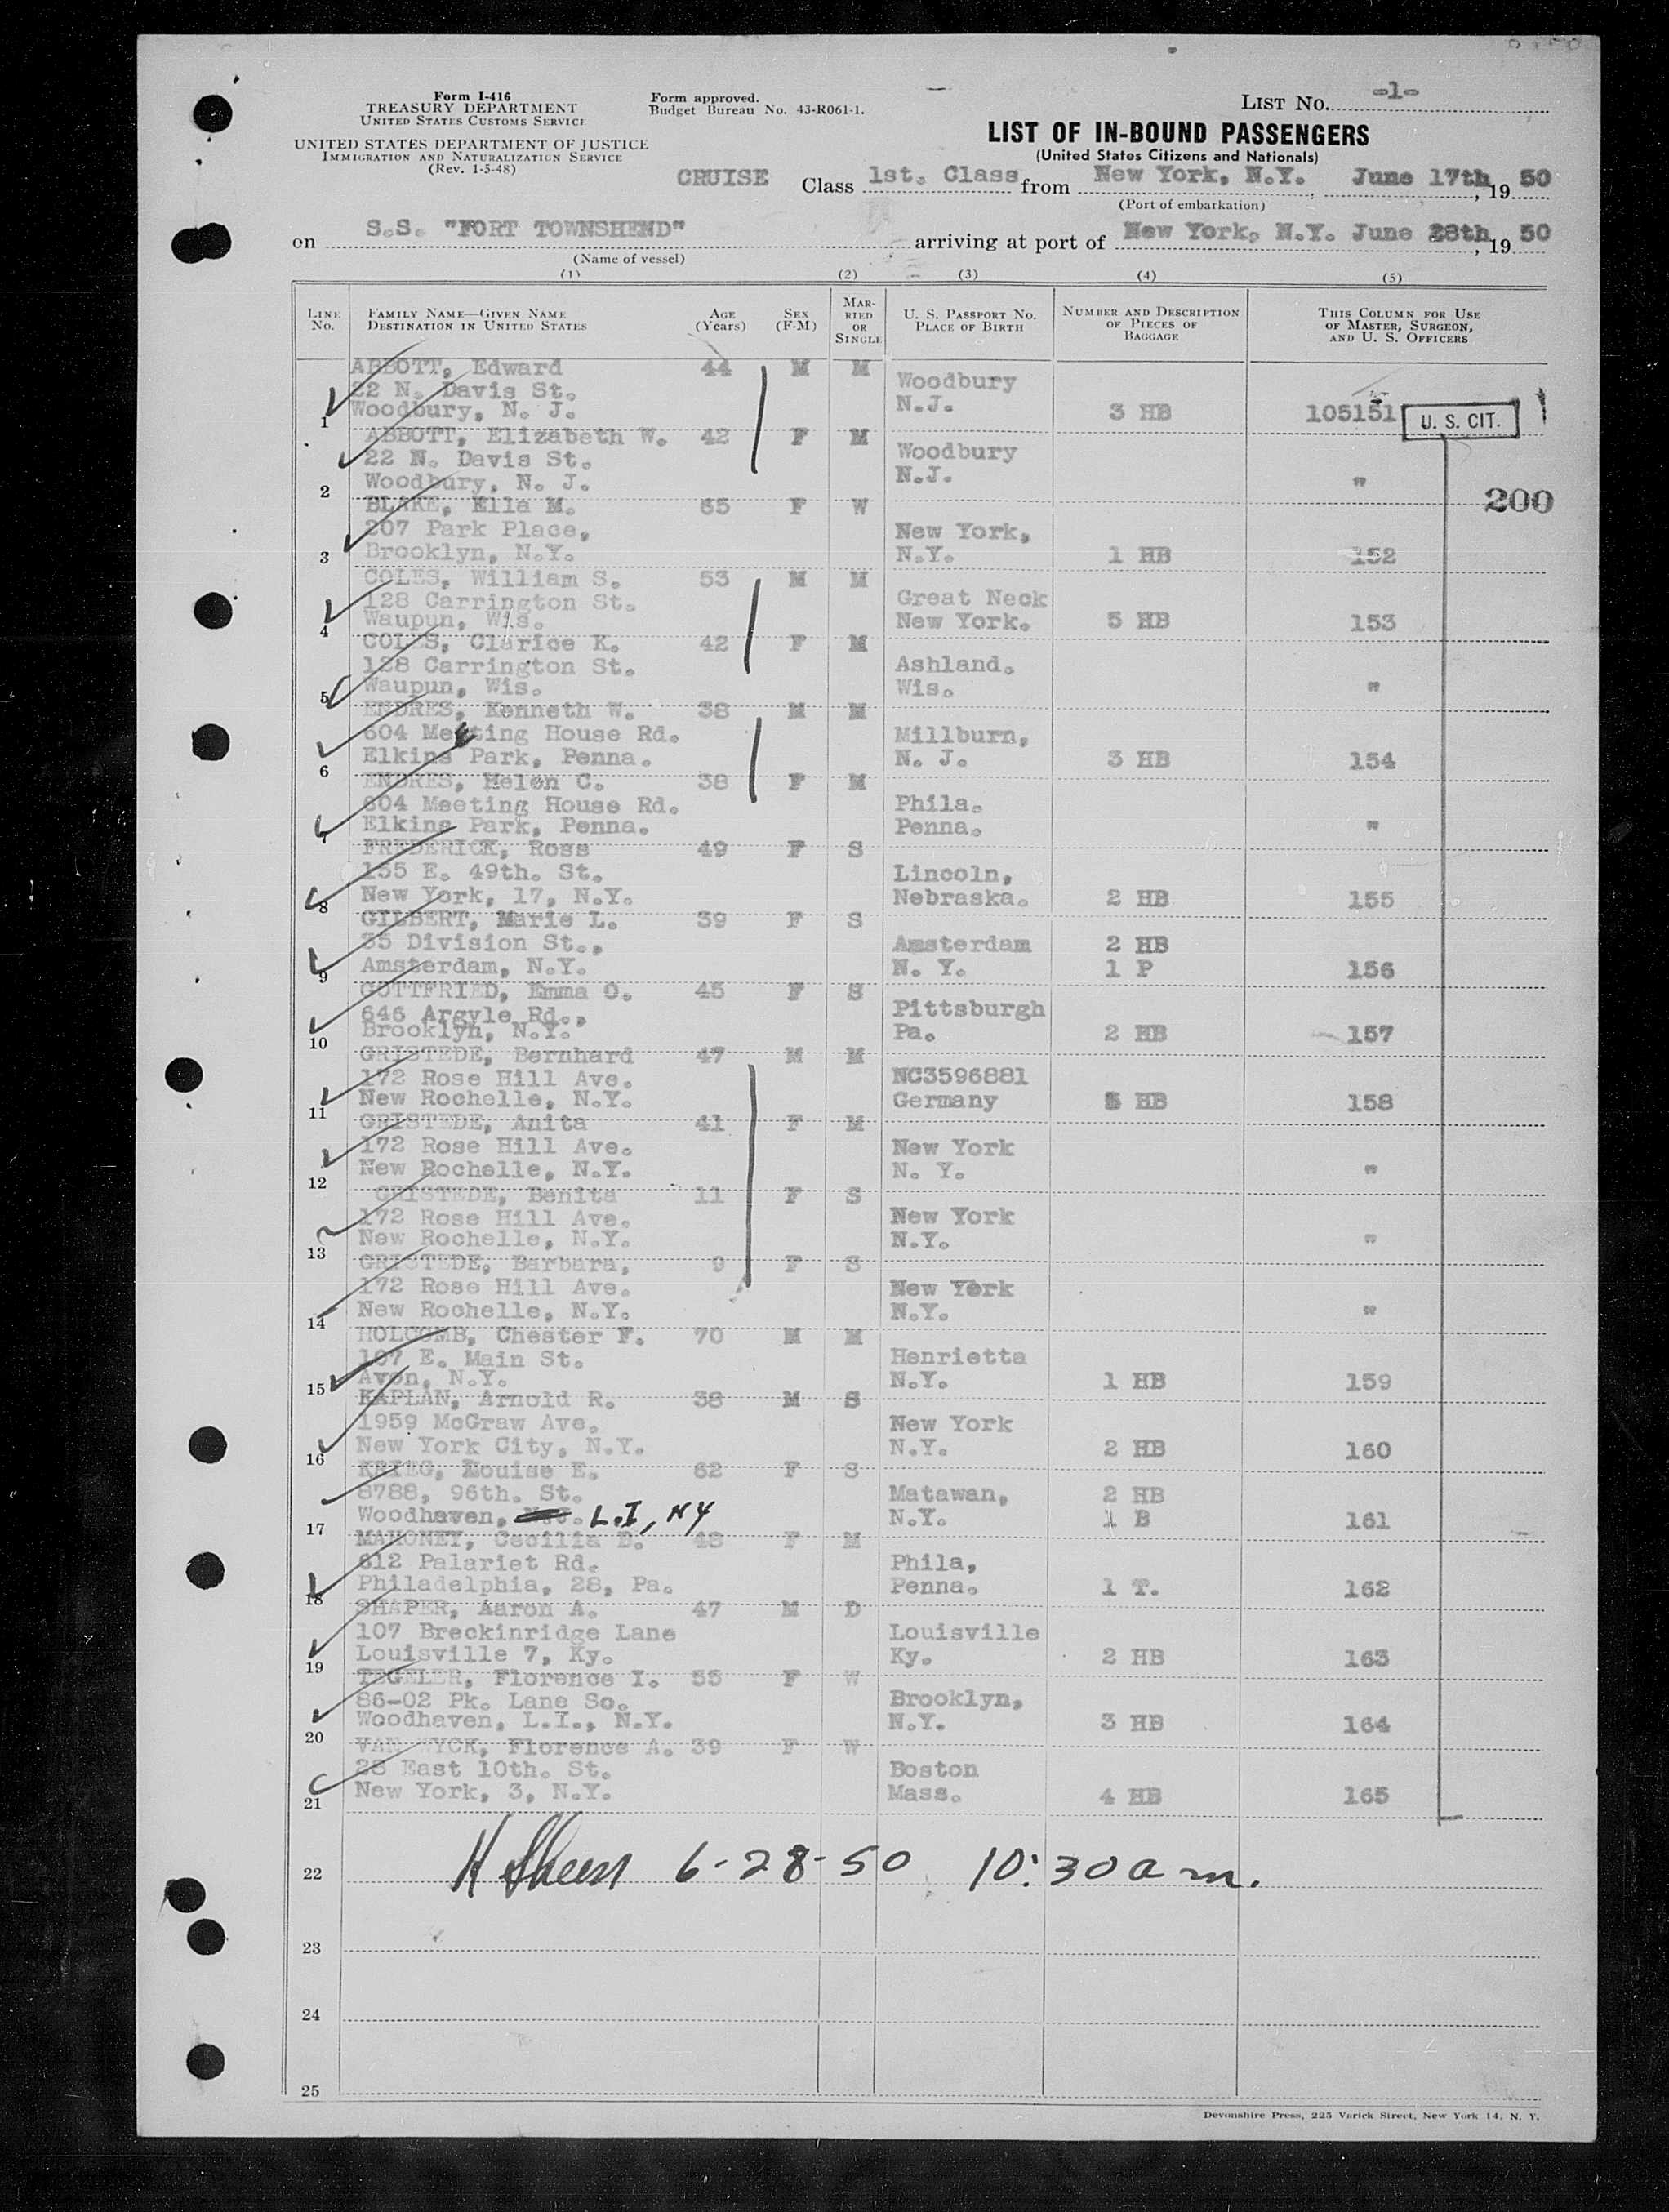 Form I-416
TREASURY DEPARTMENT
UNITED STATES CUSTOMS SERVICE
UNITED STATES DEPARTMENT OF JUSTICE
IMMIGRATION AND NATURALIZATION SERVICE
(Rev. 1-5-48)
Form approved.
Budget Bureau No. 43-R061-1.
LIST No. -1-
LIST OF IN-BOUND PASSENGERS
(United States Citizens and Nationals)
CRUISE Class 1st. Class from New York, N.Y. June 17th, 19 50
(Port of embarkation)
on S.S. "FORT TOWNSHEND" arriving at port of New York, N.Y. June 28th, 19 50
(Name of vessel)
(1) (2) (3) (4) (5)
LINE No. FAMILY NAME—GIVEN NAME DESTINATION IN UNITED STATES AGE (Years) SEX (F-M) MARRIED OR SINGLE U. S. PASSPORT No. PLACE OF BIRTH NUMBER AND DESCRIPTION OF PIECES OF BAGGAGE THIS COLUMN FOR USE OF MASTER, SURGEON, AND U. S. OFFICERS
ABBOTT, Edward 44 M M
22 N. Davis St. Woodbury
1 Woodbury, N. J. N.J. 3 HB 105151 U. S. CIT.
ABBOTT, Elizabeth W. 42 F M
22 N. Davis St. Woodbury
2 Woodbury, N. J. N.J. "
200
BLAKE, Ella M. 65 F W
207 Park Place, New York,
3 Brooklyn, N.Y. N.Y. 1 HB 152
COLES, William S. 53 M M
128 Carrington St. Great Neck
4 Waupun, Wis. New York. 5 HB 153
COLES, Clarice K. 42 F M
128 Carrington St. Ashland.
5 Waupun, Wis. Wis. "
ENDRES, Kenneth W. 38 M M
604 Meeting House Rd. Millburn,
6 Elkins Park, Penna. N. J. 3 HB 154
ENDRES, Helen C. 38 F M
604 Meeting House Rd. Phila.
Elkins Park, Penna. Penna. "
FREDERICK, Ross 49 F S
155 E. 49th. St. Lincoln,
8 New York, 17, N.Y. Nebraska. 2 HB 155
GILBERT, Marie L. 39 F S
35 Division St., Amsterdam 2 HB
9 Amsterdam, N.Y. N. Y. 1 P 156
GOTTFRIED, Emma O. 45 F S
646 Argyle Rd., Pittsburgh
10 Brooklyn, N.Y. Pa. 2 HB 157
GRISTEDE, Bernhard 47 M M
172 Rose Hill Ave. NC3596881
11 New Rochelle, N.Y. Germany 5 HB 158
GRISTEDE, Anita 41 F M
172 Rose Hill Ave. New York
12 New Rochelle, N.Y. N. Y. "
GRISTEDE, Benita 11 F S
172 Rose Hill Ave. New York
13 New Rochelle, N.Y. N.Y. "
GRISTEDE, Barbara, 9 F S
172 Rose Hill Ave. New York
14 New Rochelle, N.Y. N.Y. "
HOLCOMB, Chester F. 70 M M
107 E. Main St. Henrietta
15 Avon, N.Y. N.Y. 1 HB 159
KAPLAN, Arnold R. 38 M S
1959 McGraw Ave. New York
16 New York City, N.Y. N.Y. 2 HB 160
KRIEG, Louise E. 62 F S
8788, 96th. St. Matawan, 2 HB
17 Woodhaven, L.I, NY N.Y. 1 B 161
MAHONEY, Cecilia B. 48 F M
612 Palariet Rd. Phila,
18 Philadelphia, 28, Pa. Penna. 1 T. 162
SHAPER, Aaron A. 47 M D
107 Breckinridge Lane Louisville
19 Louisville 7, Ky. Ky. 2 HB 163
TEGELER, Florence I. 55 F W
86-02 Pk. Lane So. Brooklyn,
20 Woodhaven, L.I., N.Y. N.Y. 3 HB 164
VAN WYCK, Florence A. 39 F W
28 East 10th. St. Boston
21 New York, 3, N.Y. Mass. 4 HB 165
22 6-28-50 10:30 a m.
23
24
25
Devonshire Press, 225 Varick Street, New York 14, N. Y.